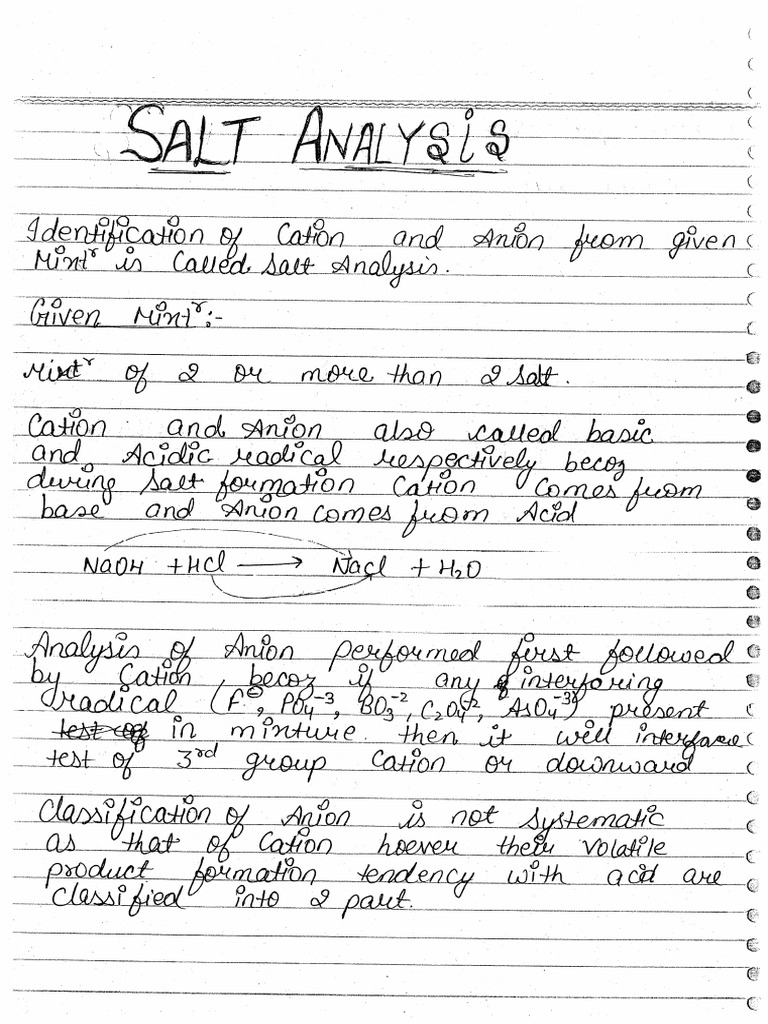 SALT ANALYSIS
Identification of Cation and Anion from given
Mixtʳ is Called Salt Analysis.
Given Mixtʳ:-
Mixtʳ of 2 or more than 2 Salt.
Cation and Anion also called basic
and Acidic radical respectively becoz
during Salt formation Cation comes from
base and Anion comes from Acid
NaOH + HCl ⟶ NaCl + H₂O
Analysis of Anion performed first followed
by Cation becoz if any interfering
radical (F⊖, PO₄⁻³, BO₃⁻², C₂O₄⁻², AsO₄⁻³) present
test of in mixture. then it will interface
test of 3rd group Cation or downward
Classification of Anion is not Systematic
as that of Cation hoever their Volatile
product formation tendency with acid are
classified into 2 part.